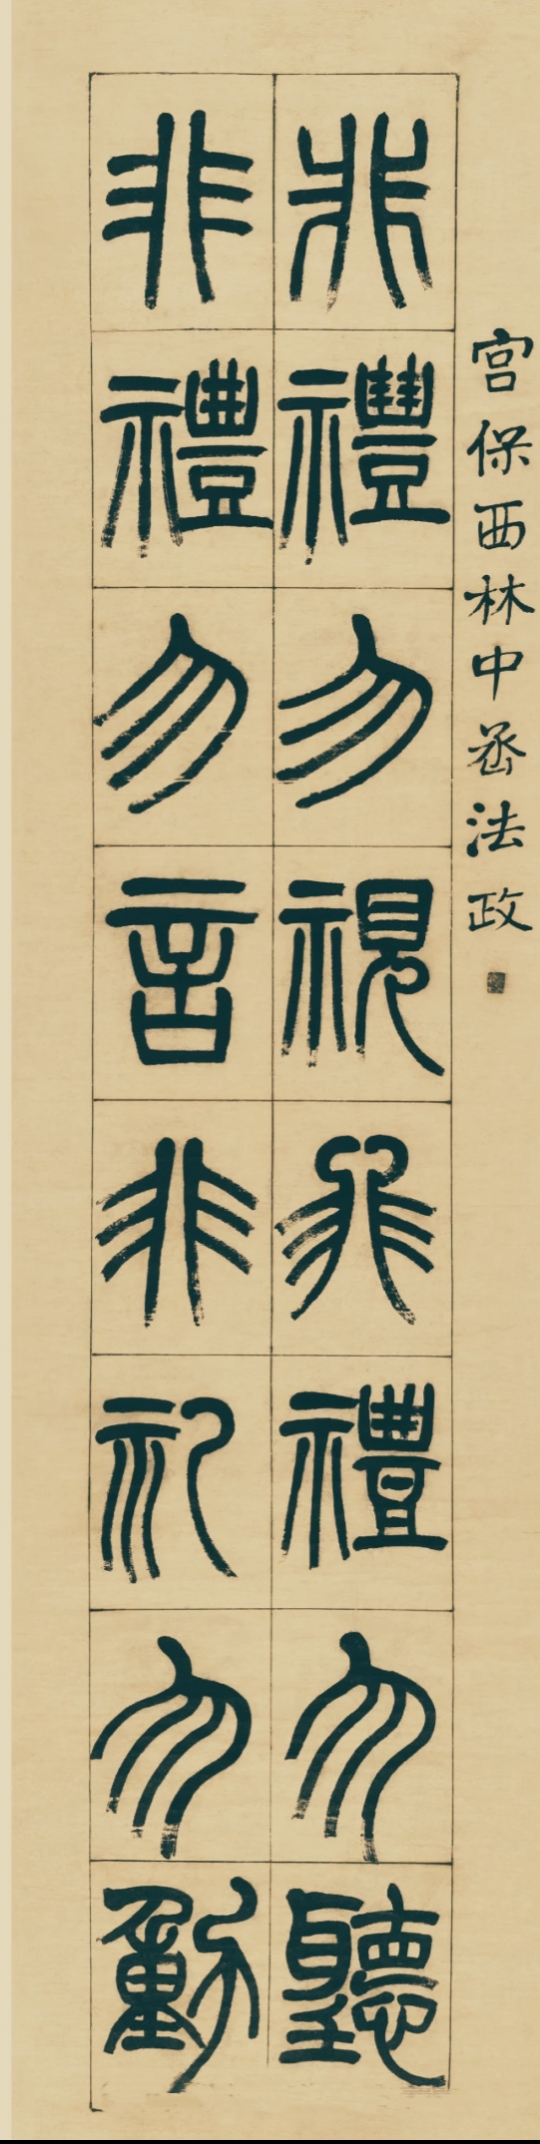 宫保西林中丞法政
非禮勿視非禮勿聽
非禮勿言非礼勿動